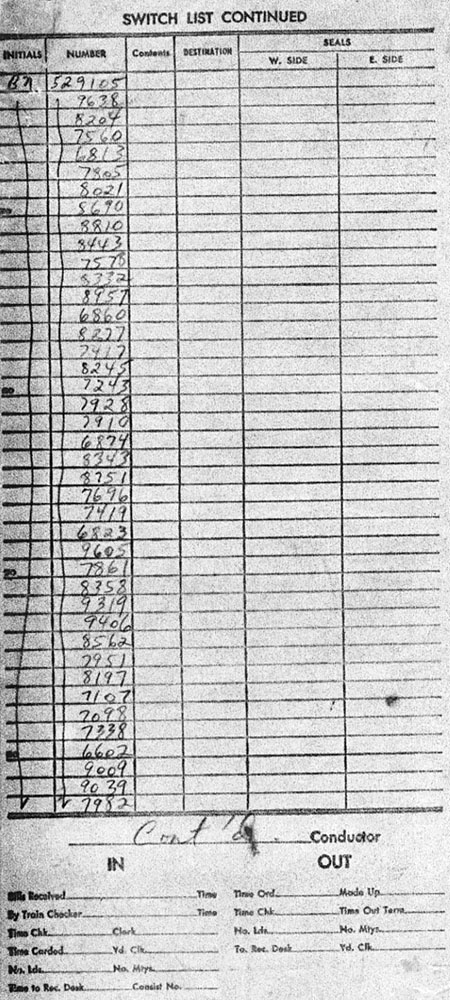 SWITCH LIST CONTINUED
INITIALS NUMBER Contents DESTINATION SEALS
W. SIDE E. SIDE
BN 529105
9638
8204
7560
6813
7805
8021
5690
8810
8443
7578
8332
8957
6860
8277
7417
8245
7243
7928
7910
6874
8343
8751
7696
7419
6823
9605
7861
8358
9319
9406
8562
7951
8197
7107
7098
7338
6602
9009
9039
7982
Cont'd. Conductor
IN OUT
Received Time Time Ord. Made Up
By Train Checker Time Time Chk. Time Out Term.
Time Chk. Clerk No. Lds. No. Mtys.
Time Carded Yd. Clk. To. Rec. Desk Yd. Clk.
No. Lds. No. Mtys.
Time to Rec. Desk Consist No.